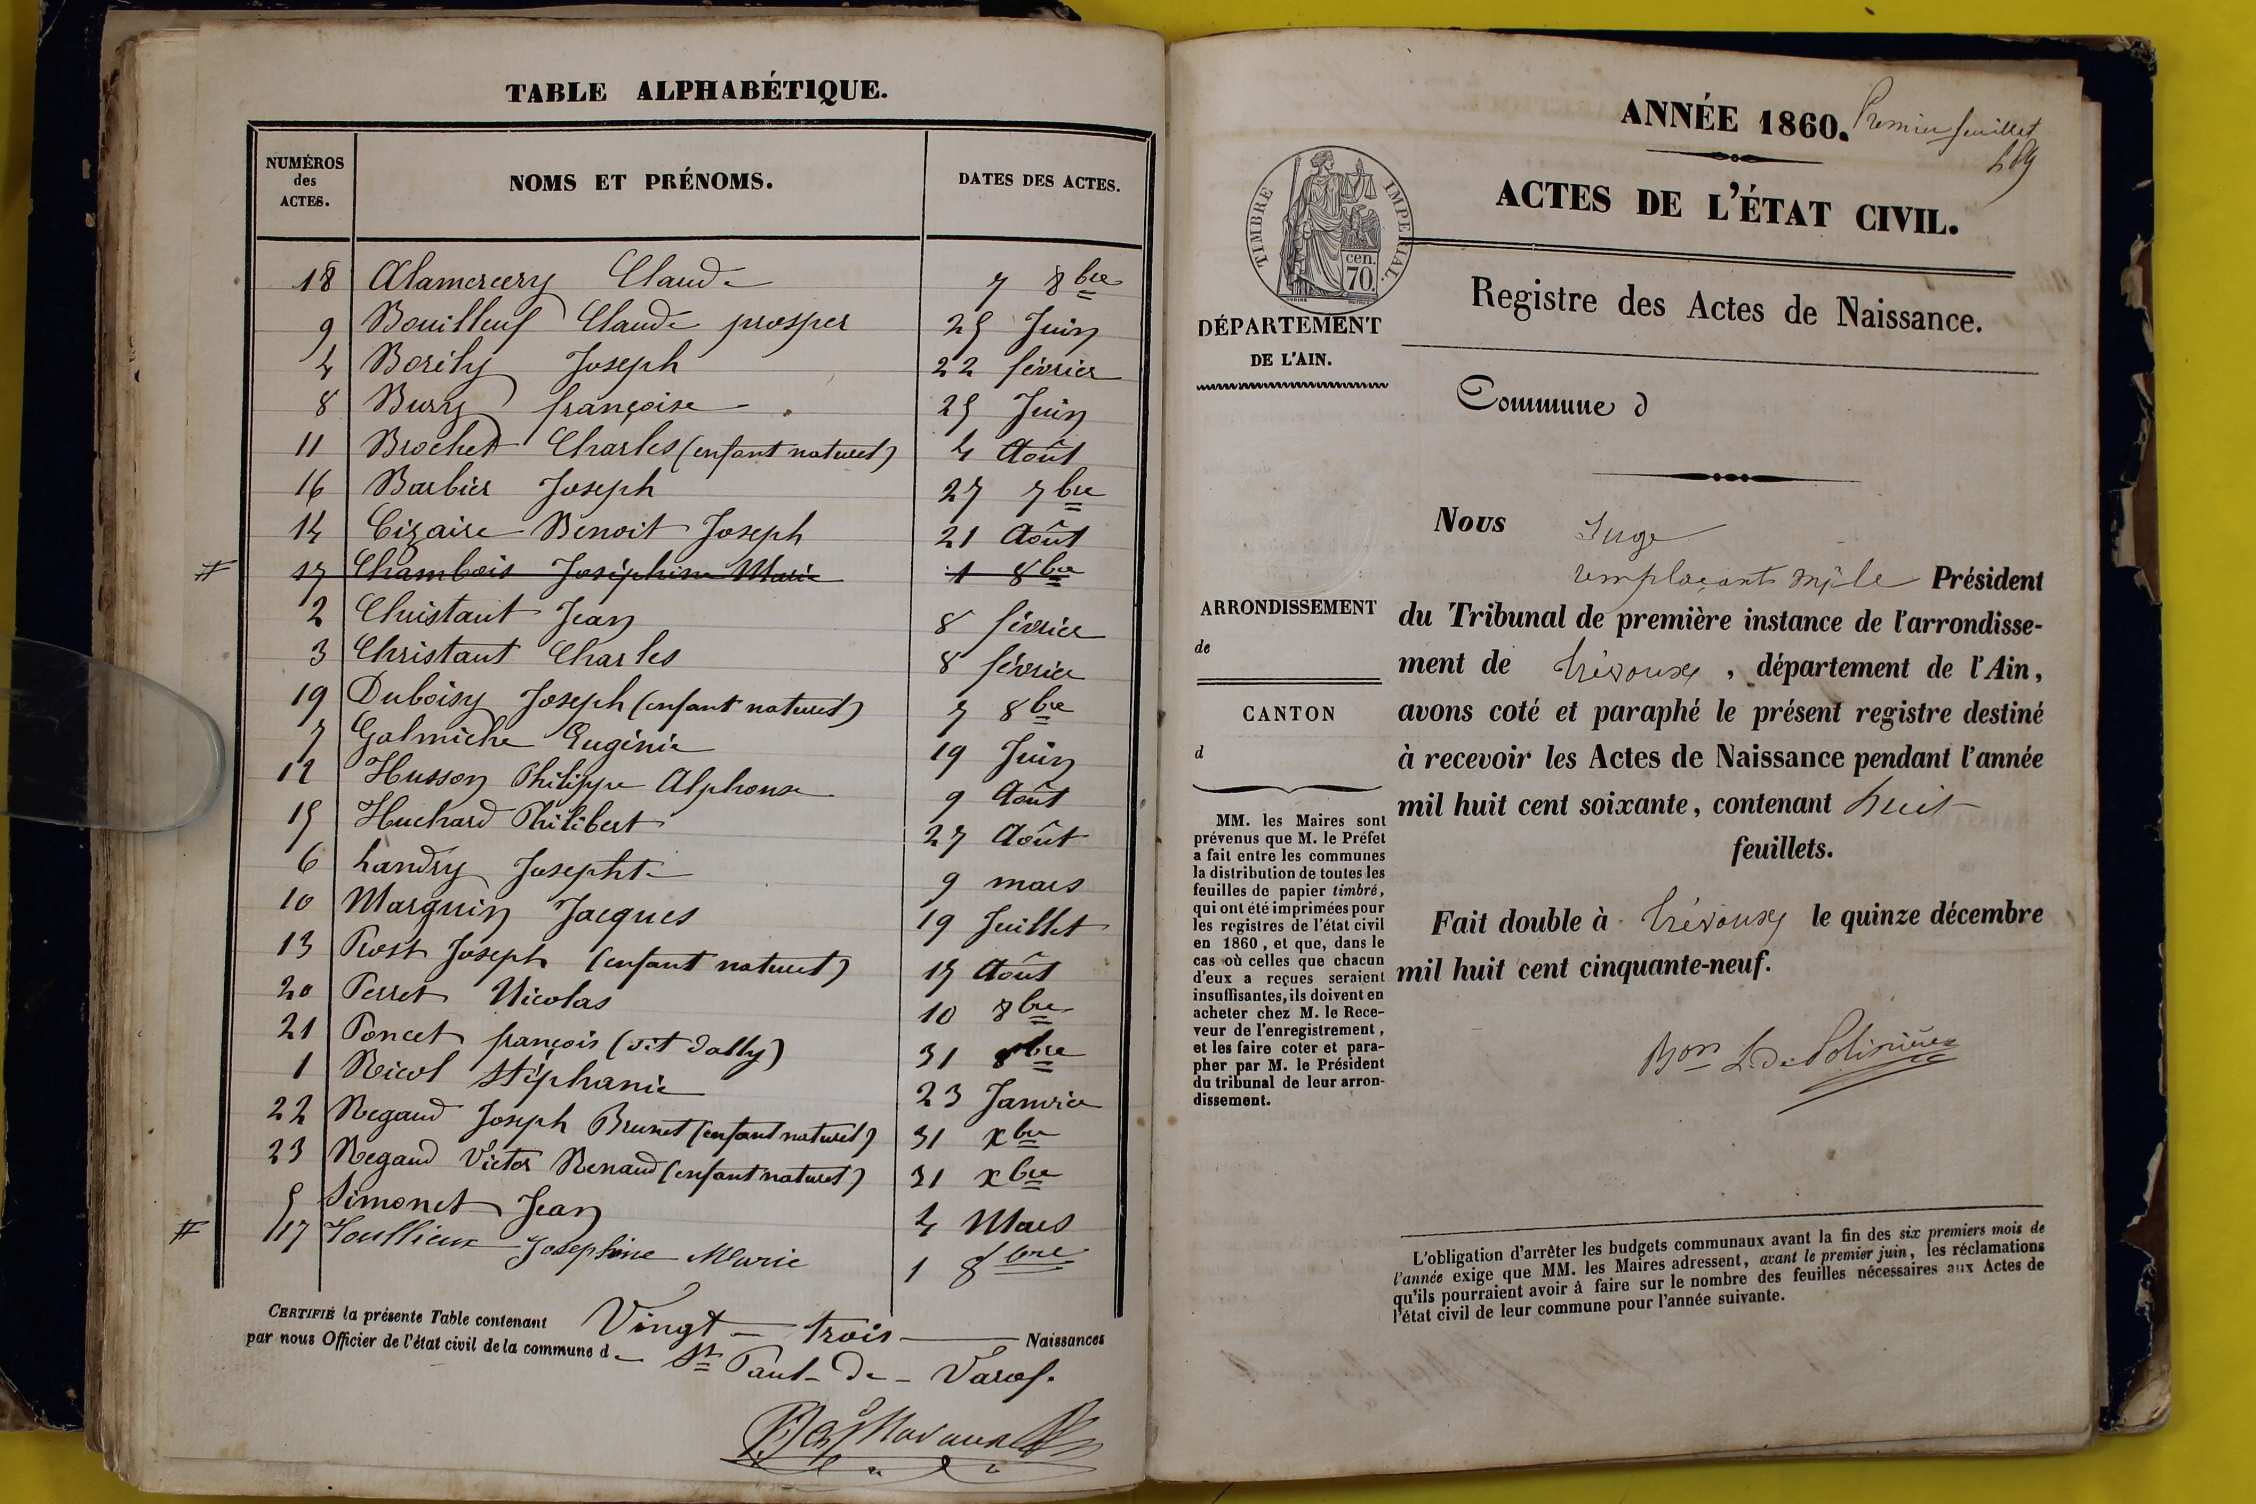 TABLE ALPHABÉTIQUE.
NUMÉROS des ACTES. NOMS ET PRÉNOMS. DATES DES ACTES.
18 Alamercery Claude 7 8bre
9 Bouilleuf Claude prosper 25 Juin
4 Borély Joseph 22 février
8 Burry françoise 25 Juin
11 Brochet Charles (enfant naturel) 4 Août
16 Barbier Joseph 27 7bre
14 Cizaire Benoit Joseph 21 Août
# 17 Chambois Joséphine Marie 1 8bre
2 Christaut Jean 8 février
3 Christaut Charles 8 février
19 Duboisy Joseph (enfant naturel) 7 8bre
7 Galmiche Eugénie 19 Juin
12 Husson Philippe Alphonse 9 Août
15 Huchard Philibert 27 Août
6 Landry Josepht 9 mars
10 Marguin Jacques 19 Juillet
13 Prost Joseph (enfant naturel) 15 Août
20 Perret Nicolas 10 8bre
21 Poncet françois (dit Dally) 31 8bre
1 Nicol Stéphanie 23 Janvier
22 Regaud Joseph Brunet (enfant naturel) 31 xbre
23 Regaud Victor Renaud (enfant naturel) 31 xbre
5 Simonet Jean 4 Mars
# 17 Toullieux Josephine Marie 1 8bre
CERTIFIÉ la présente Table contenant Vingt-trois Naissances
par nous Officier de l'état civil de la commune d St Paul-de-Varax.
ANNÉE 1860. Premier feuillet
ACTES DE L'ÉTAT CIVIL.
TIMBRE IMPERIAL.
cen.
70.
Registre des Actes de Naissance.
DÉPARTEMENT
DE L'AIN.
Commune d
Nous Juge
remplaçant Mr le Président
ARRONDISSEMENT
de
CANTON
d
du Tribunal de première instance de l'arrondisse-
ment de Trévoux, département de l'Ain,
avons coté et paraphé le présent registre destiné
à recevoir les Actes de Naissance pendant l'année
mil huit cent soixante, contenant huit
feuillets.
Fait double à Trévoux le quinze décembre
mil huit cent cinquante-neuf.
MM. les Maires sont
prévenus que M. le Préfet
a fait entre les communes
la distribution de toutes les
feuilles de papier timbré,
qui ont été imprimées pour
les registres de l'état civil
en 1860, et que, dans le
cas où celles que chacun
d'eux a reçues seraient
insuffisantes, ils doivent en
acheter chez M. le Rece-
veur de l'enregistrement,
et les faire coter et para-
pher par M. le Président
du tribunal de leur arron-
dissement.
Bon L. de Polinière
L'obligation d'arrêter les budgets communaux avant la fin des six premiers mois de
l'année exige que MM. les Maires adressent, avant le premier juin, les réclamations
qu'ils pourraient avoir à faire sur le nombre des feuilles nécessaires aux Actes de
l'état civil de leur commune pour l'année suivante.